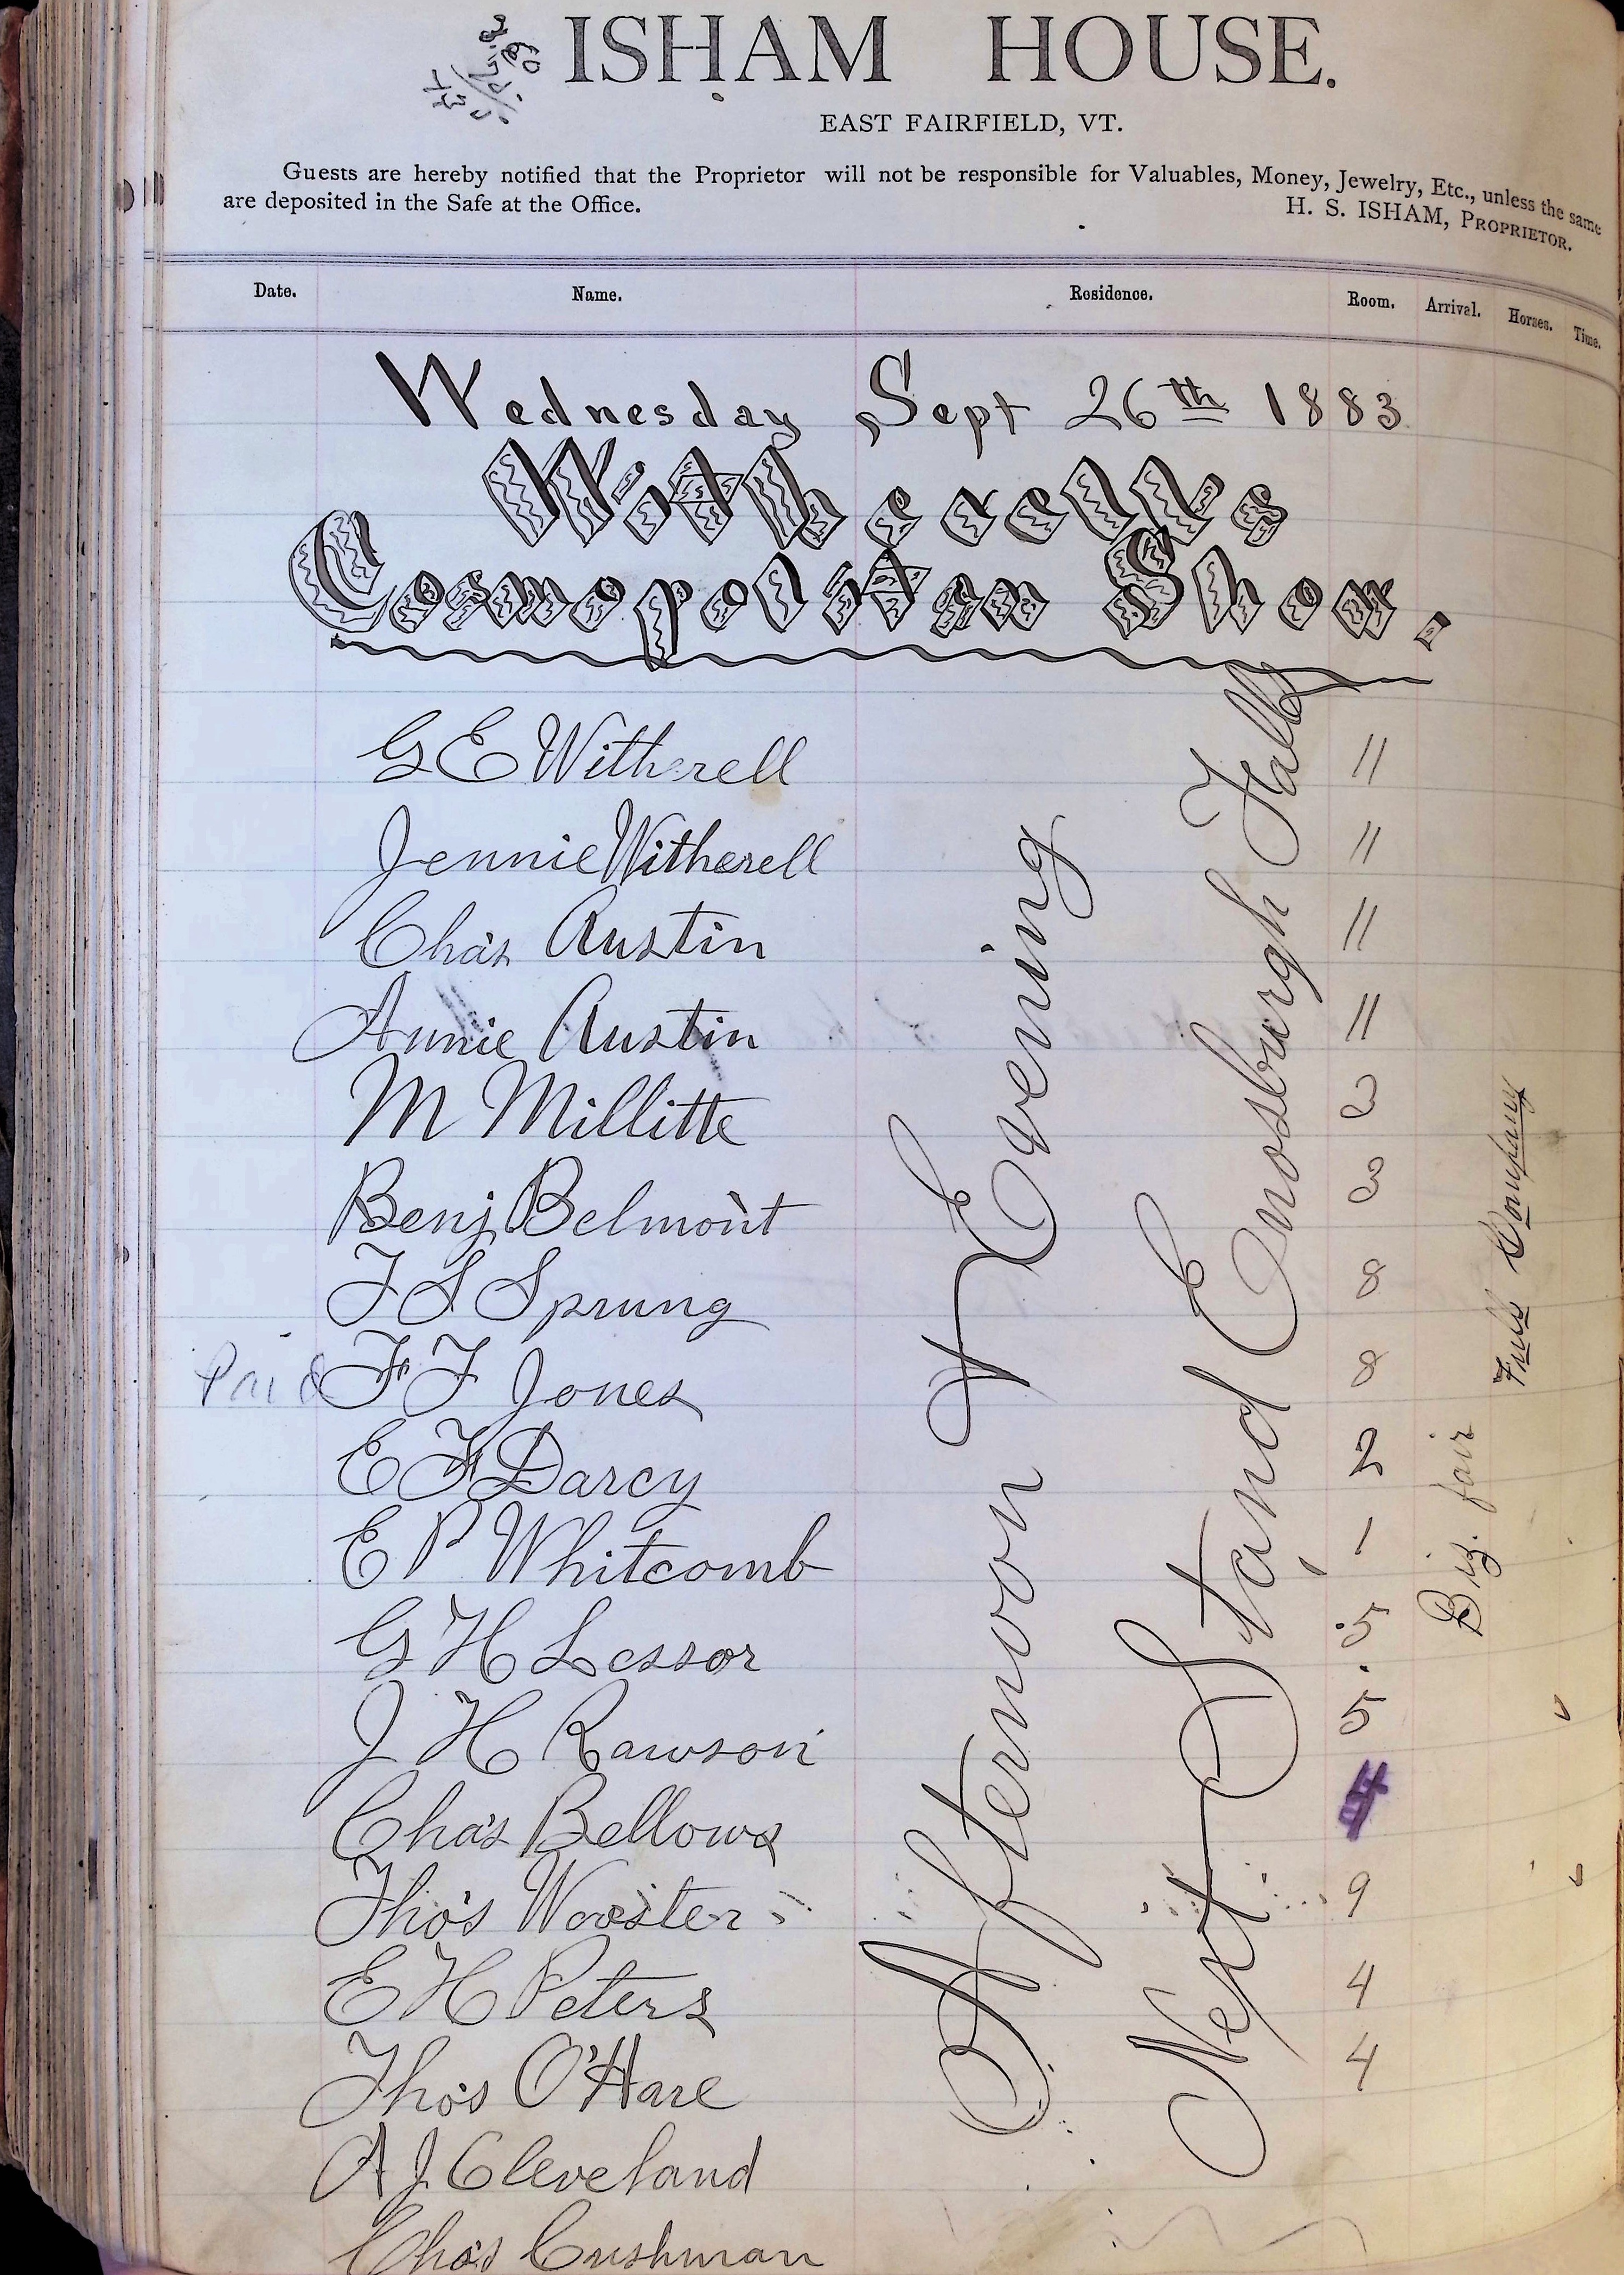 ISHAM HOUSE.
EAST FAIRFIELD, VT.
Guests are hereby notified that the Proprietor will not be responsible for Valuables, Money, Jewelry, Etc., unless the same
are deposited in the Safe at the Office.
H. S. ISHAM, PROPRIETOR.
Date. Name. Residence. Room. Arrival. Horses. Time.
Wednesday Sept 26th 1883
Witherell's
Cosmopolitan Show.
G E Witherell 11
Jennie Witherell 11
Cha's Austin 11
Annie Austin 11
M Millitte 3
Benj Belmont 3
F S Sprung 8
Paid F F Jones 8
E F Darcy 2
E P Whitcomb 1
G H Lessor 5
J H Rawson 5
Cha's Bellows
Tho's Wooster 9
E H Peters 4
Tho's O'Hare 4
A J Cleveland
Cha's Cushman
Afternoon & Evening
Next Stand Enosburgh Falls
Biz. fair
Full Company